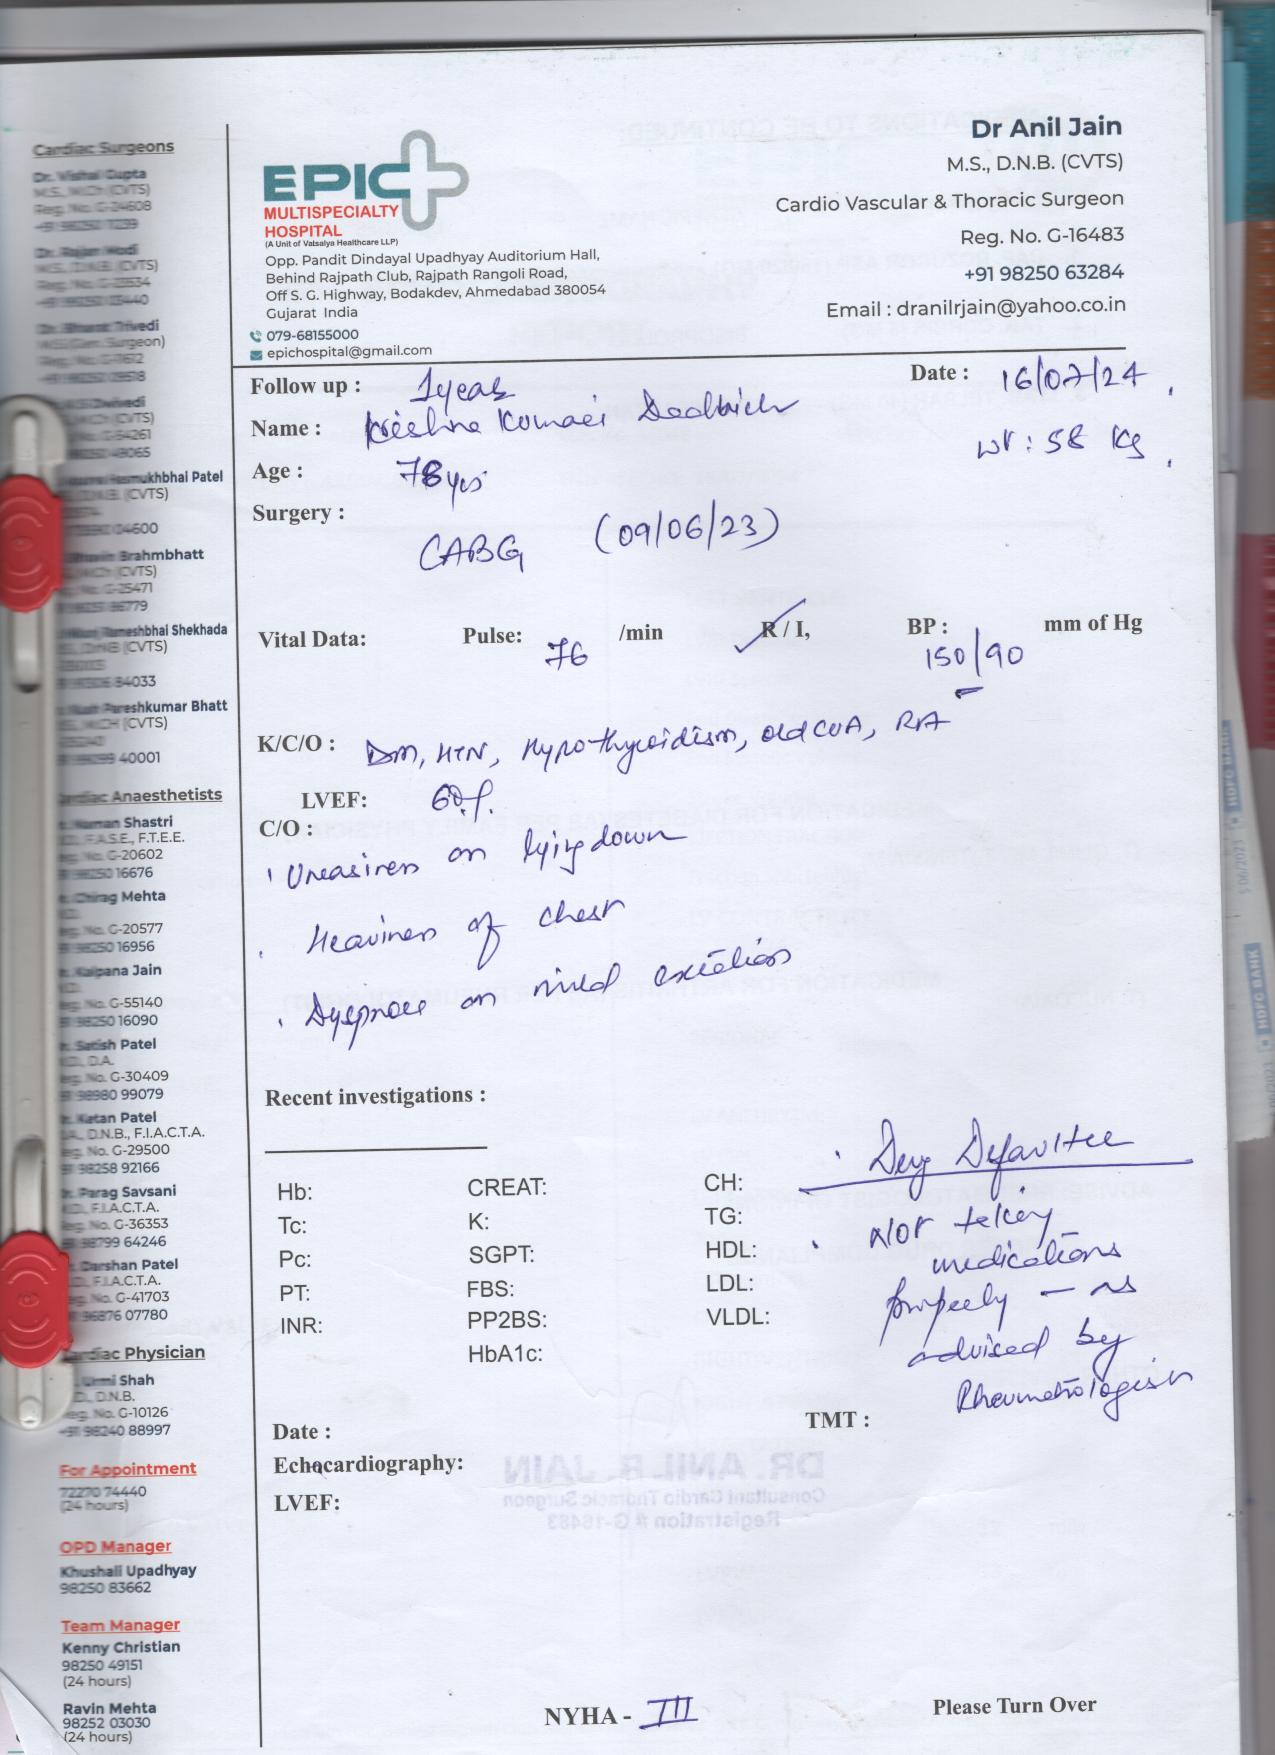 Cardiac Surgeons
Dr. Vishal Gupta
M.S., M.Ch (CVTS)
Reg. No. G-24608
+91 98250 11299
Dr. Rajan Modi
M.S., D.N.B. (CVTS)
+91 98250 03440
Dr. Bharat Trivedi
M.S.(Gen. Surgeon)
Dwivedi
(CVTS)
Hasmukhbhai Patel
D.N.B. (CVTS)
04600
Brahmbhatt
M.Ch (CVTS)
No. G-25471
86779
Rameshbhai Shekhada
DNB (CVTS)
84033
Pareshkumar Bhatt
M.CH (CVTS)
40001
Cardiac Anaesthetists
Naman Shastri
F.A.S.E., F.T.E.E.
No. G-20602
98250 16676
Chirag Mehta
No. G-20577
98250 16956
Kalpana Jain
No. G-55140
98250 16090
Satish Patel
D.A.
No. G-30409
98980 99079
Ketan Patel
D.N.B., F.I.A.C.T.A.
No. G-29500
98258 92166
Parag Savsani
F.I.A.C.T.A.
No. G-36353
98799 64246
Darshan Patel
F.I.A.C.T.A.
No. G-41703
96876 07780
Cardiac Physician
Urmi Shah
D.N.B.
No. G-10126
+91 98240 88997
For Appointment
72270 74440
(24 hours)
OPD Manager
Khushali Upadhyay
98250 83662
Team Manager
Kenny Christian
98250 49151
(24 hours)
Ravin Mehta
98252 03030
(24 hours)
EPIC
MULTISPECIALTY
HOSPITAL
(A Unit of Vatsalya Healthcare LLP)
Opp. Pandit Dindayal Upadhyay Auditorium Hall,
Behind Rajpath Club, Rajpath Rangoli Road,
Off S. G. Highway, Bodakdev, Ahmedabad 380054
Gujarat India
079-68155000
epichospital@gmail.com
Dr Anil Jain
M.S., D.N.B. (CVTS)
Cardio Vascular & Thoracic Surgeon
Reg. No. G-16483
+91 98250 63284
Email : dranilrjain@yahoo.co.in
Follow up : 1 year Date : 16/07/24
Name : Krishna Kumari
wt : 58 kg
Age : 78 yrs
Surgery :
CABG (09/06/23)
Vital Data: Pulse: 76 /min R / I, BP : 150/90 mm of Hg
K/C/O : DM, HTN, Hypothyroidism, old CVA, RA
LVEF: 60%
C/O :
Uneasiness on lying down
Heaviness of chest
Dyspnoea on mild exertion
Recent investigations :
Drug Defaulter
Not taking
medications
properly - as
advised by
Rheumatologist
Hb: CREAT: CH:
Tc: K: TG:
Pc: SGPT: HDL:
PT: FBS: LDL:
INR: PP2BS: VLDL:
HbA1c:
Date : TMT :
Echocardiography:
LVEF:
NYHA - III
Please Turn Over
HDFC BANK
HDFC BANK